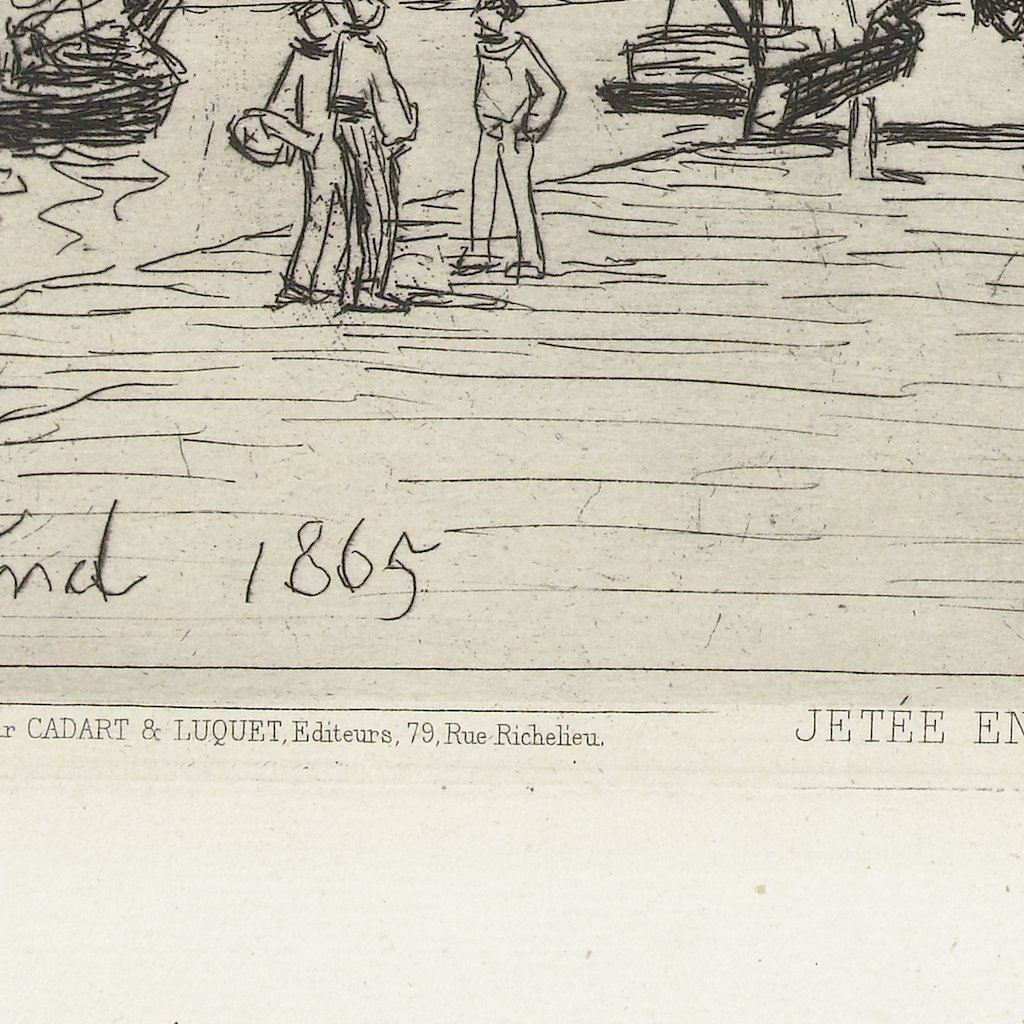 1865
CADART & LUQUET, Editeurs, 79, Rue Richelieu.
JETÉE EN